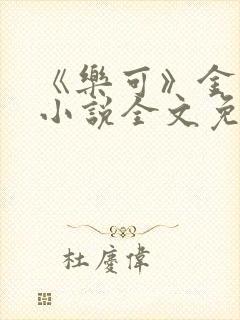 《樂可》全
小說全文免
杜慶偉